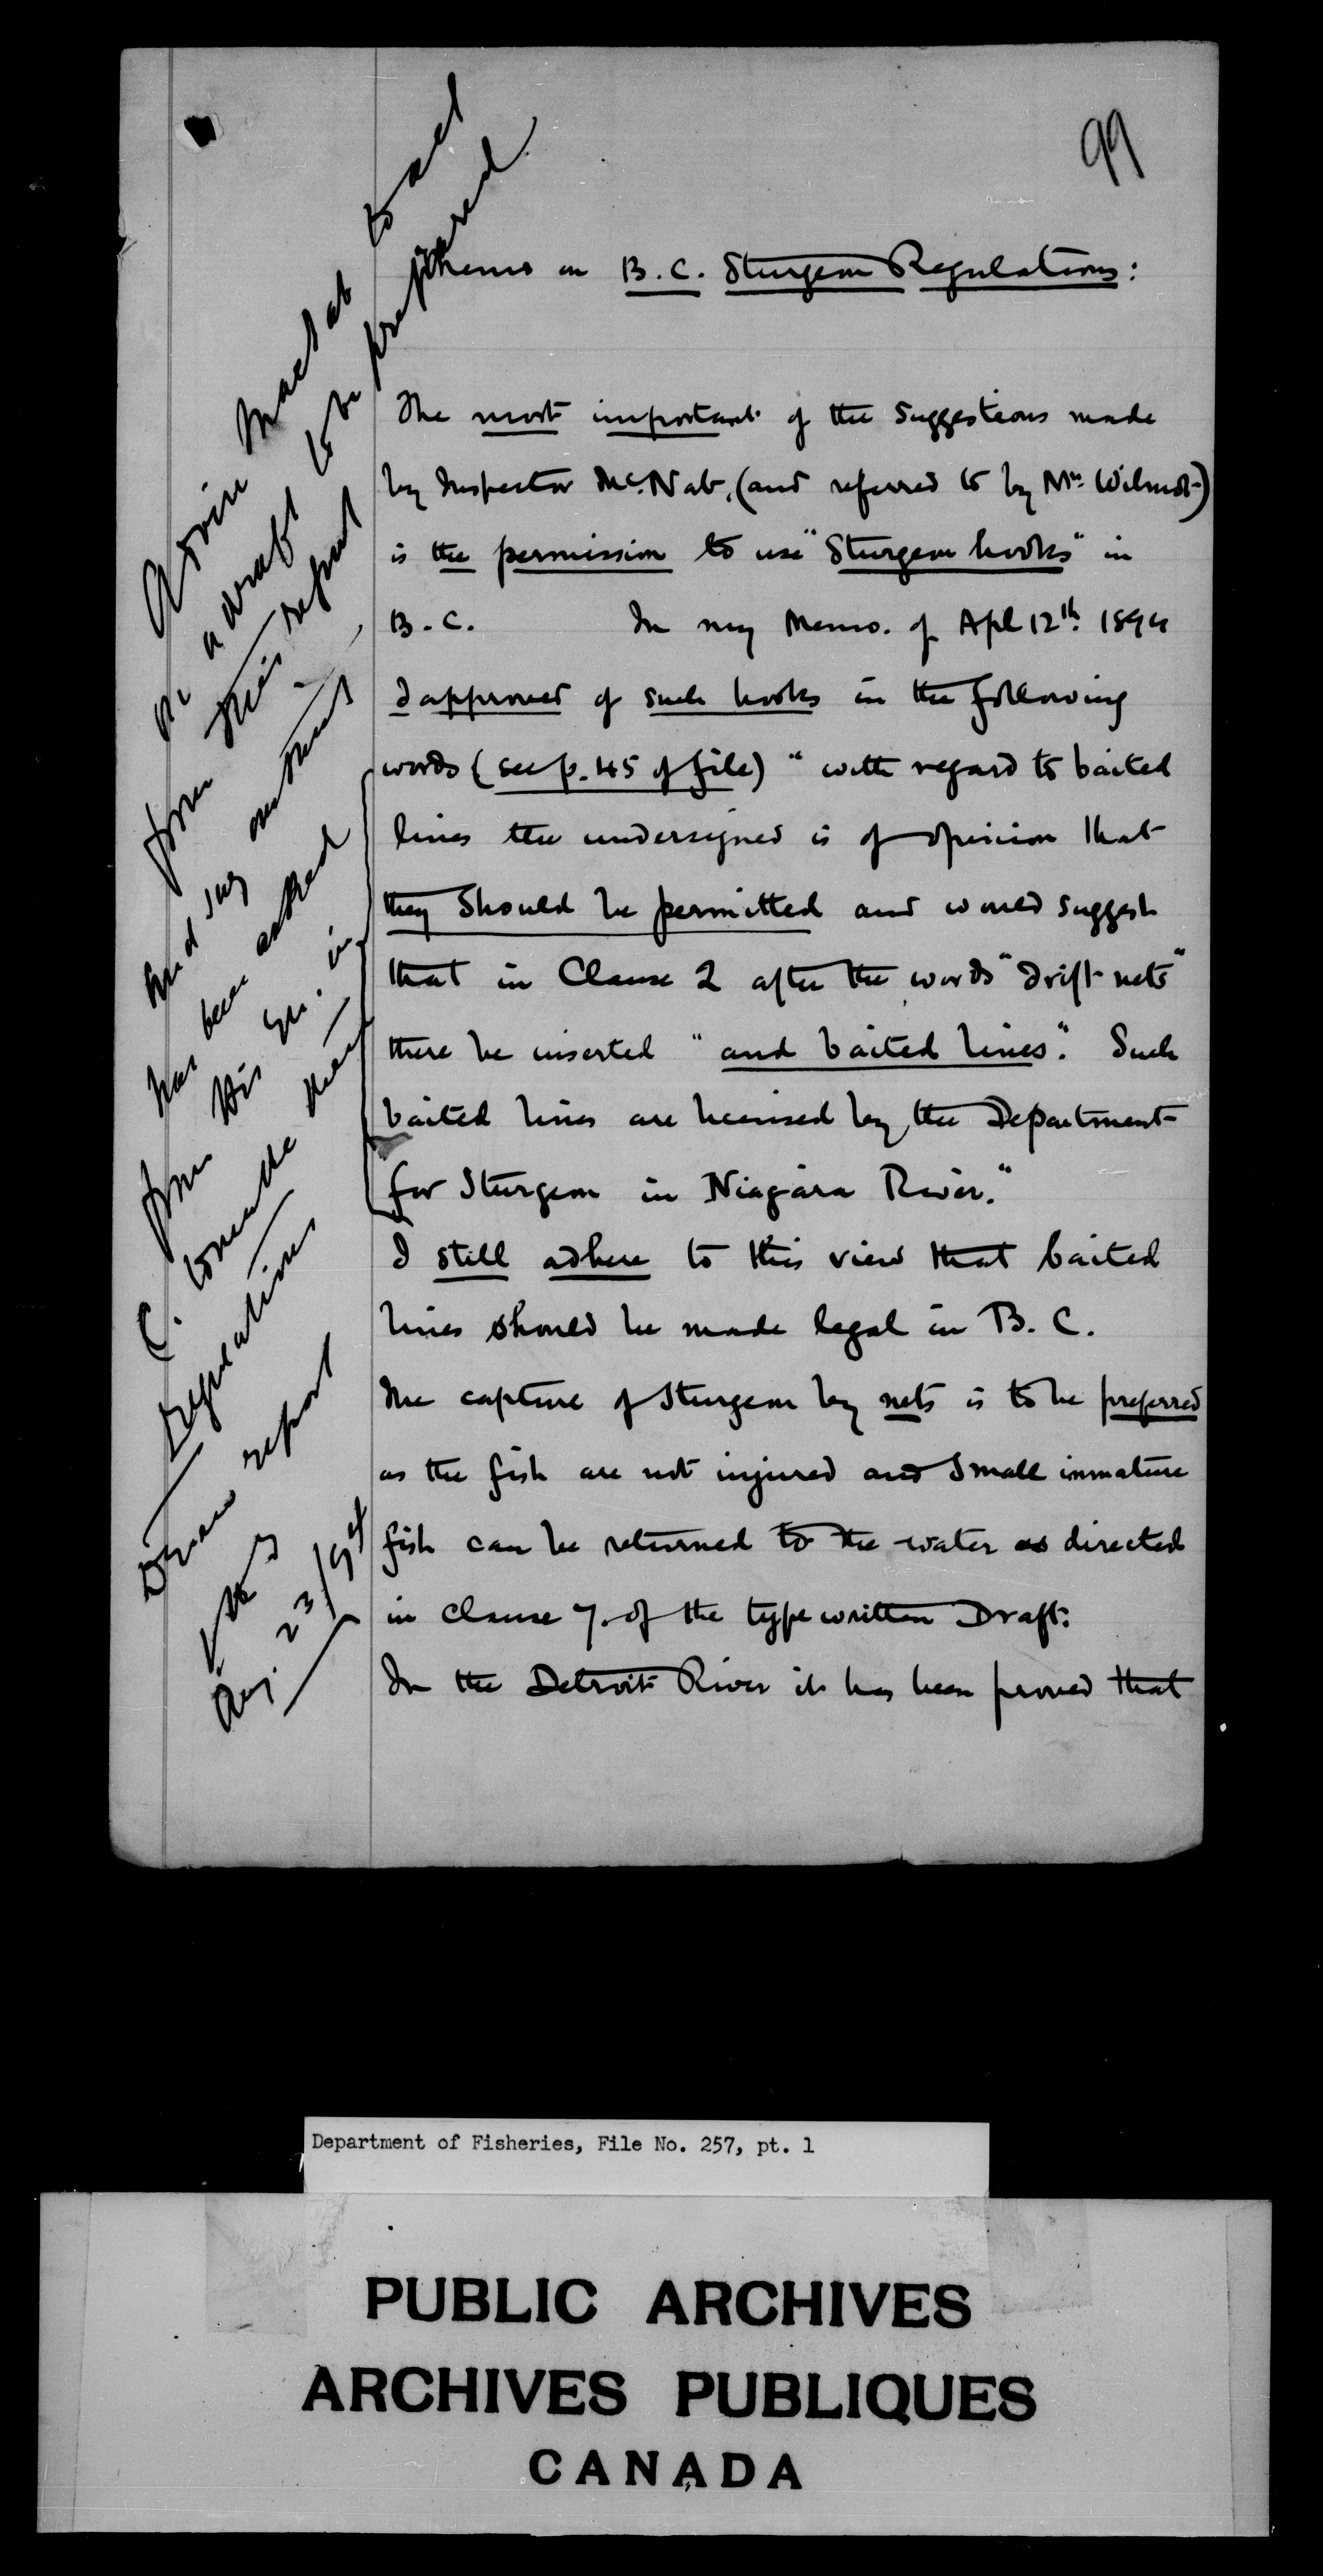 99
Memo on B.C. Sturgeon Regulations:
The most important of the suggestions made
by Inspector McNab, (and referred to by Mr. Wilmot)
is the permission to use "Sturgeon hooks" in
B.C. In my Memo. of Apl 12th. 1894
I approved of such hooks in the following
words (see p. 45 of file) "with regard to baited
lines the undersigned is of opinion that
they should be permitted and would suggest
that in Clause 2 after the words "drift nets"
there be inserted "and baited lines". Such
baited lines are licensed by the Department
for Sturgeon in Niagara River."
I still adhere to this view that baited
lines should be made legal in B.C.
The capture of Sturgeon by nets is to be preferred
as the fish are not injured and small immature
fish can be returned to the water as directed
in Clause 7. of the typewritten Draft.
In the Detroit River it has been proved that
to act
on a draft to be prepared
from this report
and say
has been asked
from His Ex. in
C. to make these
regulations
Draw report
Aug. 23/94
Department of Fisheries, File No. 257, pt. 1
PUBLIC ARCHIVES
ARCHIVES PUBLIQUES
CANADA